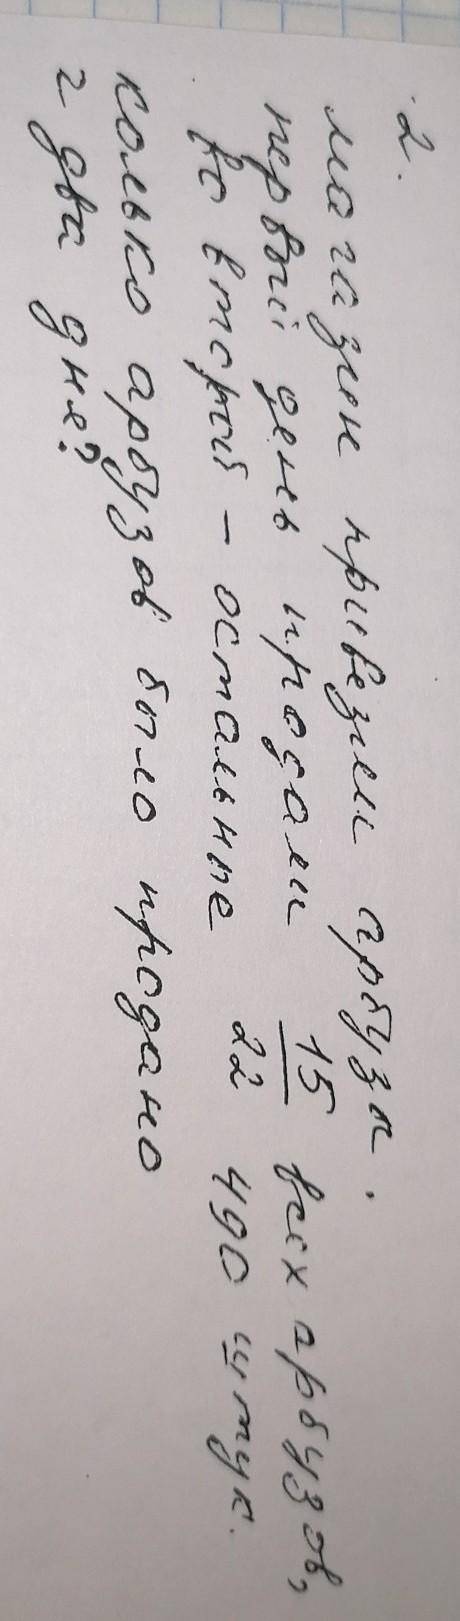 2.
магазин привезли арбузы.
первый день продали 15/22 всех арбузов,
во второй – остальные 490 штук.
колько арбузов было продано
г два дня?